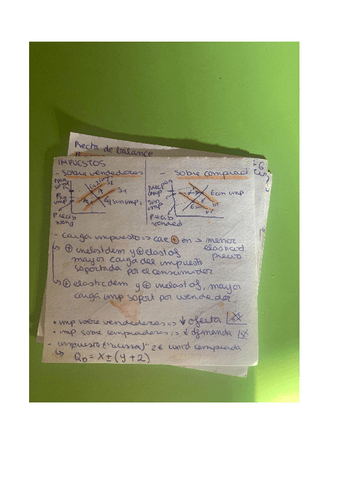 Recta de balance
IMPUESTOS
- sobre vendedores
- sobre comprad
S2
S1
sin imp
Precio
vend
- carga impuesto => cae ⊕ en => menor
elasticid
precio
↳ ⊕ inelast dem y ⊕ elast of,
mayor carga del impuesto
soportada por el consumidor
↳ ⊕ elastic dem y ⊕ inelast of, mayor
carga imp soport por vendedor
• imp sobre vendedores => ↓ oferta
• imp sobre compradores => ↓ demanda
- impuesto 2€ unid comprada
↳ QD = X ± (y + 2)